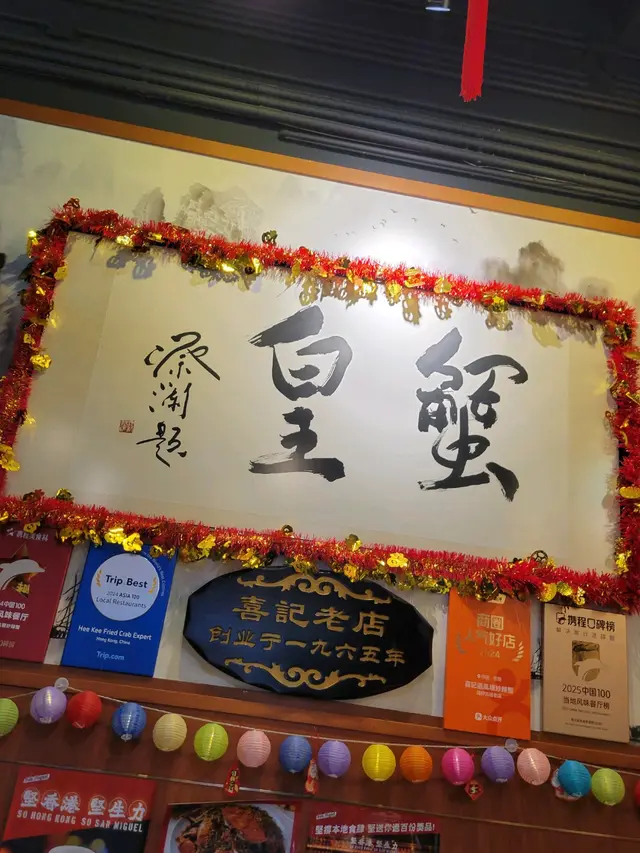 蟹皇
蔡瀾題
Trip.Best
2024 ASIA 100
Local Restaurants
Hee Kee Fried Crab Expert
Hong Kong, China
Trip.com
喜記老店
创业于一九六五年
商圈
人气好店
大众点评
携程口碑榜
2025中国100
当地风味餐厅榜
堅香港 堅生力
SO HONG KONG SO SAN MIGUEL
堅撐本地食肆 堅送你過百份獎品